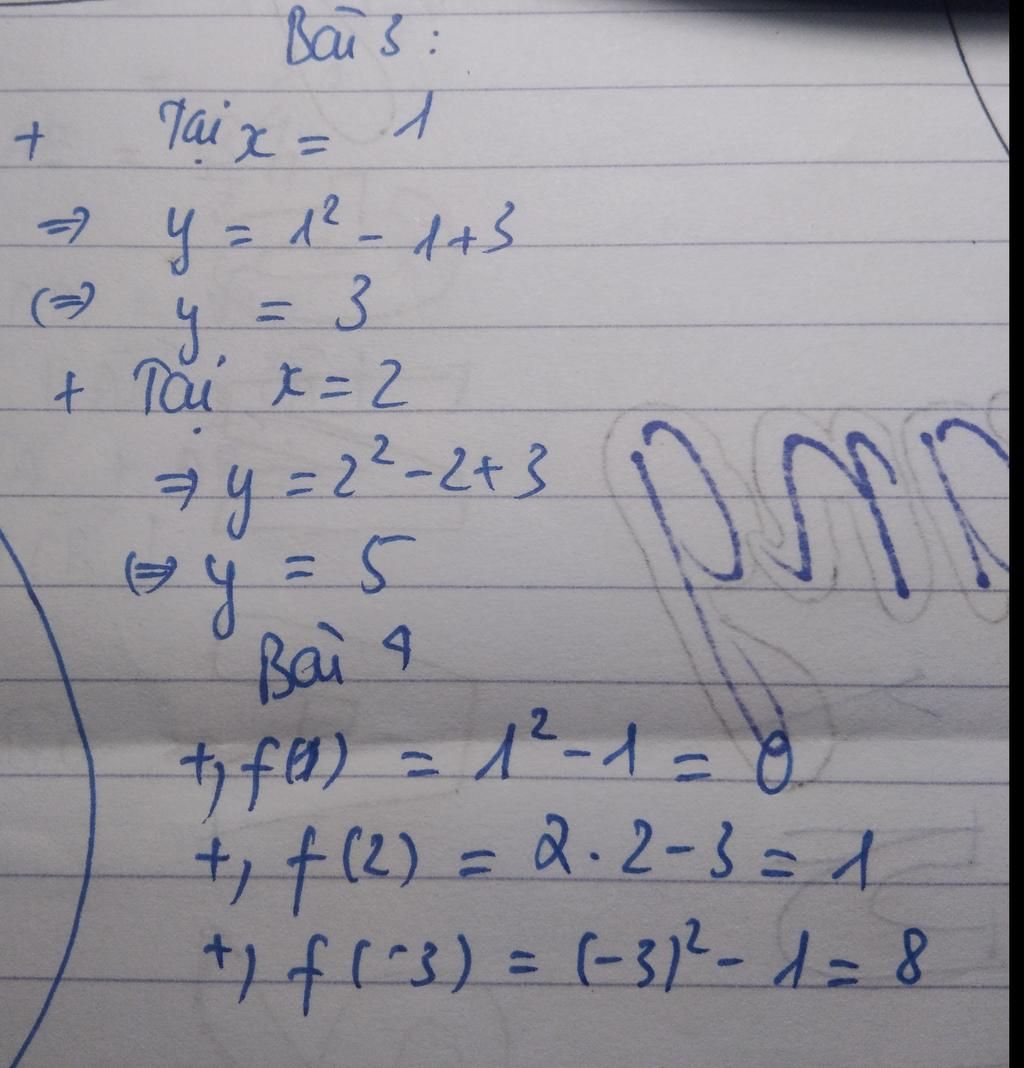 Bài 3 :
+ Tại x = 1
⇒ y = 1² - 1 + 3
⇔ y = 3
+ Tại x = 2
⇒ y = 2² - 2 + 3
⇔ y = 5
Bài 4
+, f(1) = 1² - 1 = 0
+, f(2) = 2 . 2 - 3 = 1
+, f(-3) = (-3)² - 1 = 8